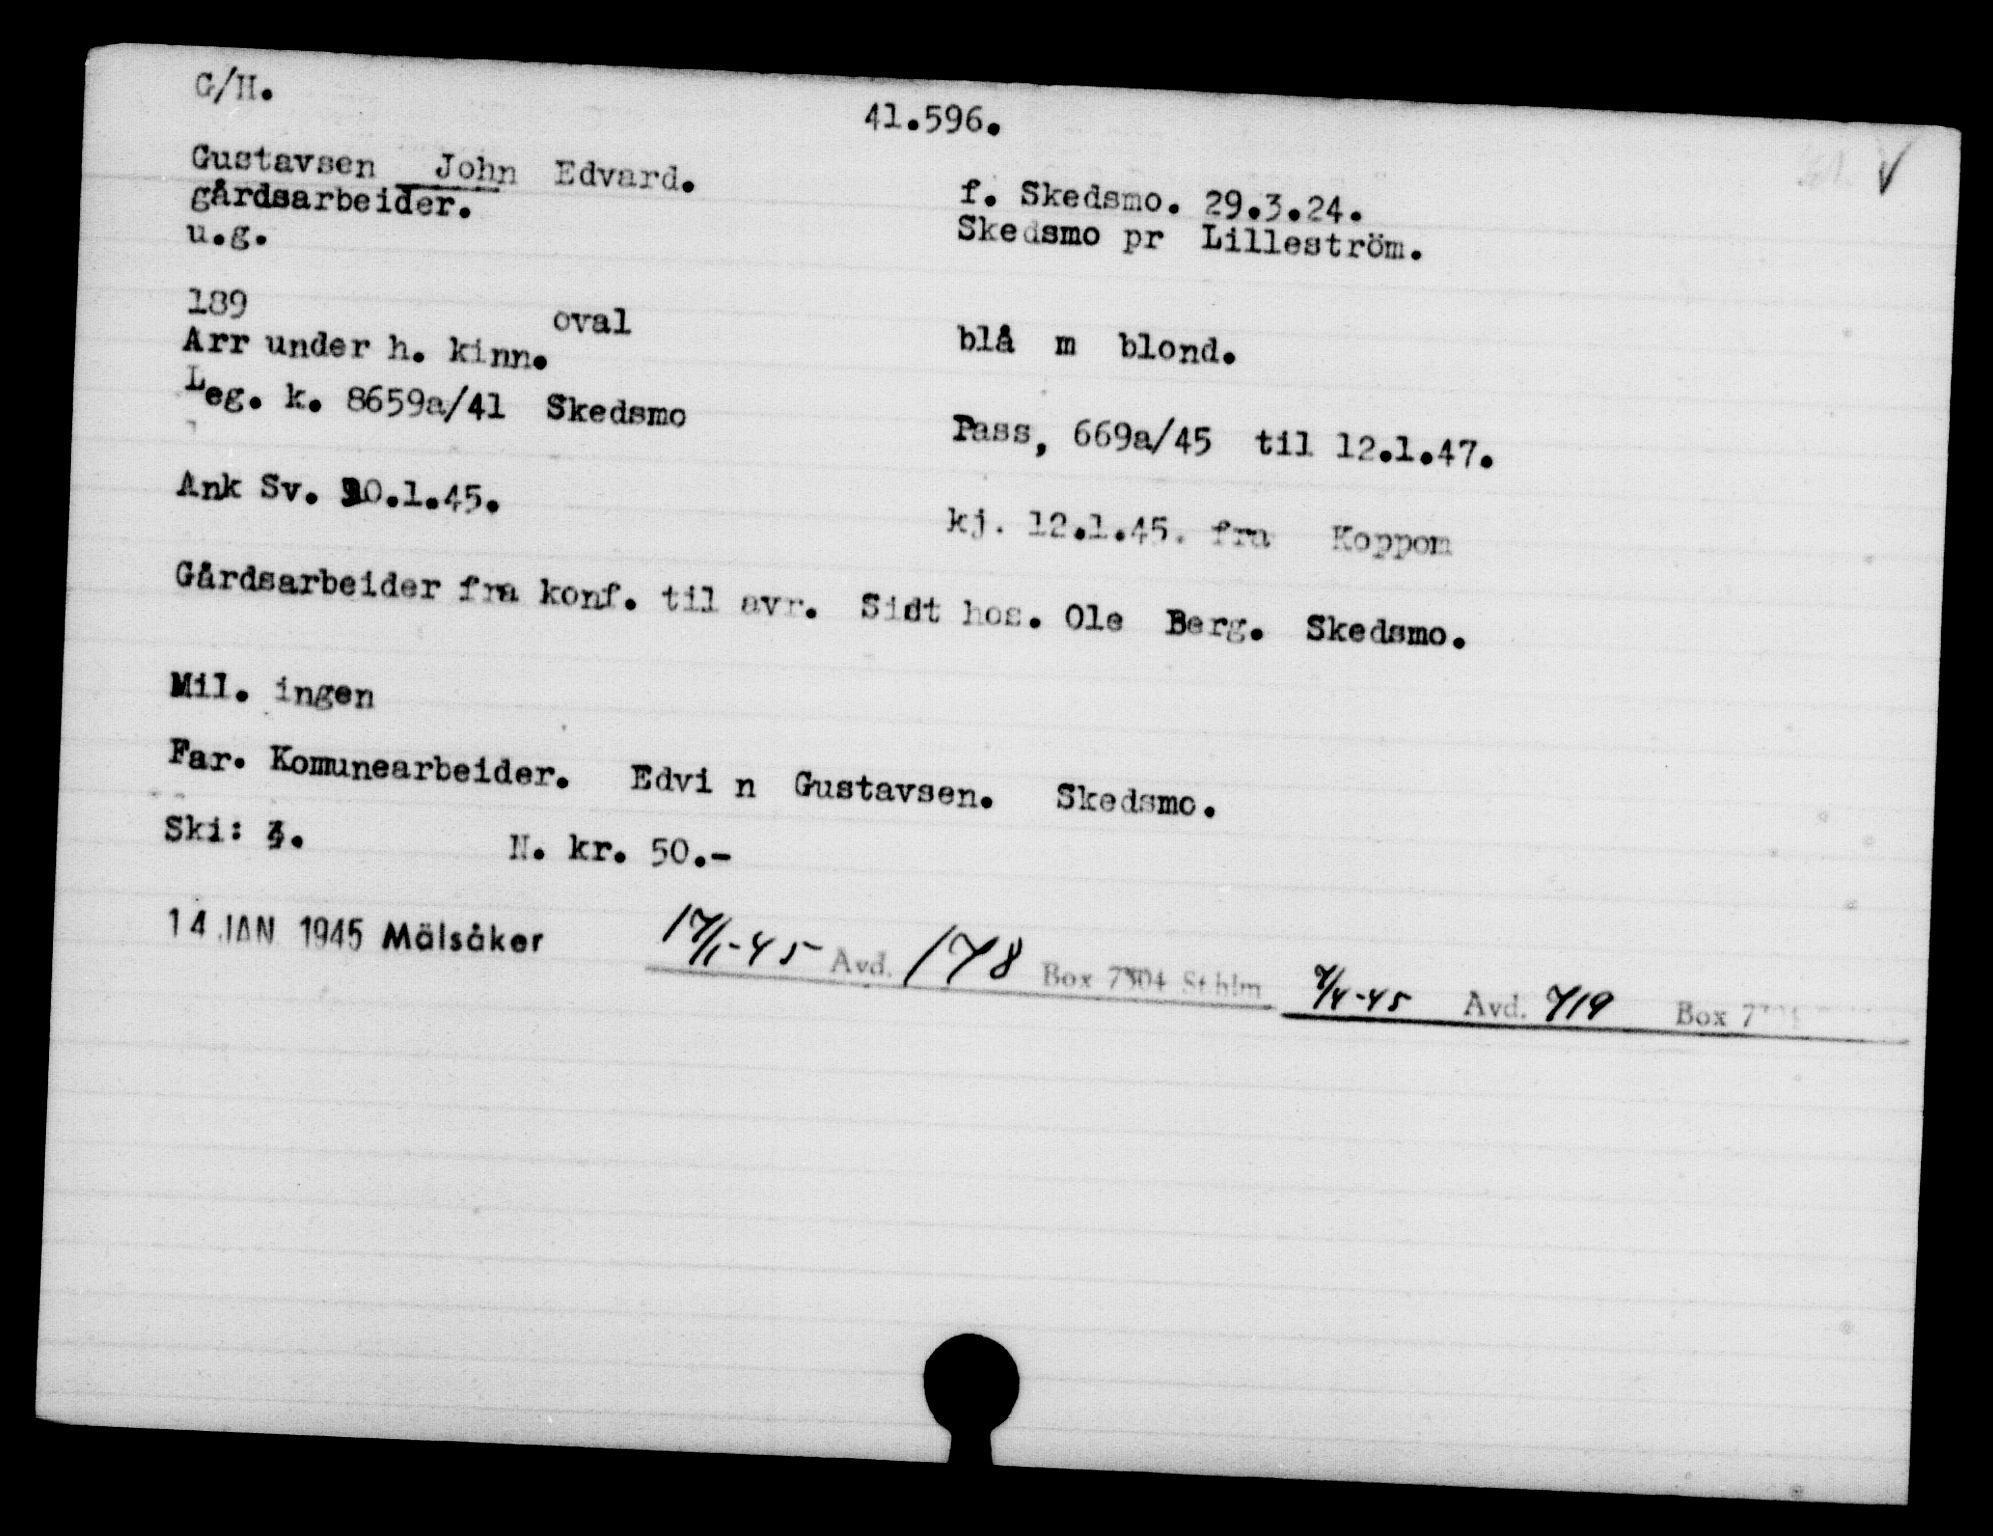 G/H.
41.596.
Gustavsen John Edvard.
f. Skedsmo. 29.3.24.
gårdsarbeider.
Skedsmo pr Lilleström.
u.g.
189 oval blå m blond.
Arr under h. kinn.
Leg. k. 8659a/41 Skedsmo
Pass, 669a/45 til 12.1.47.
Ank Sv. 10.1.45.
kj. 12.1.45. fra Koppom
Gårdsarbeider fra konf. til avr. Sidt hos. Ole Berg. Skedsmo.
Mil. ingen
Far. Komunearbeider. Edvi n Gustavsen. Skedsmo.
Ski: N. kr. 50.-
14 JAN 1945 Mälsåker 17/1-45 Avd. 178 Box 7304 Sthlm 7/4-45 Avd. 719 Box